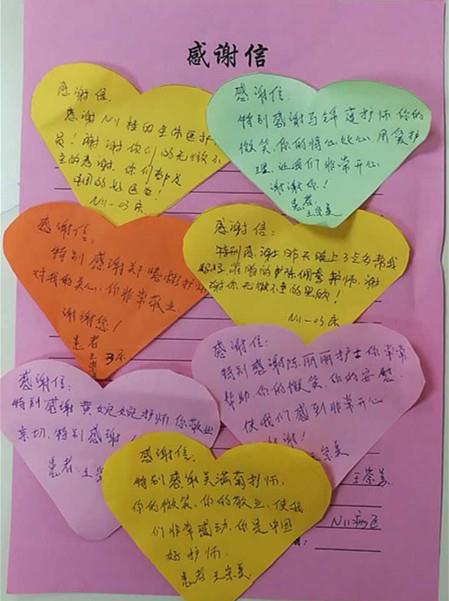 感谢信
感谢信
感谢N11楼的全体医护
员！谢谢你们的无微不
至的
中国的好医生！
N11-03床
感谢信:
特别感谢 护师你的
微笑,你的将心比心,用爱护
理,让我们非常开心
谢谢你!
患者:
王崇美
感谢信:
特别感谢郑 护师
对我的关心,你非常敬业
谢谢您!
患者
3床
感谢信:
特别感谢昨天晚上 帮我
护师,谢
谢你无微不至的
N11-03床
感谢信:
特别感谢黄婉婉护师,你敬业
亲切,特别感谢!
患者
感谢信:
特别感谢陈丽丽护士你常常
帮助,你的微笑,你的安慰.
使我们感到非常开心
谢谢!
王崇美
王崇美
N11病区
感谢信.
特别感谢吴满菊护师,
你的微笑,你的敬业,使我
们非常感动,你是中国
好护师.
患者 王崇美